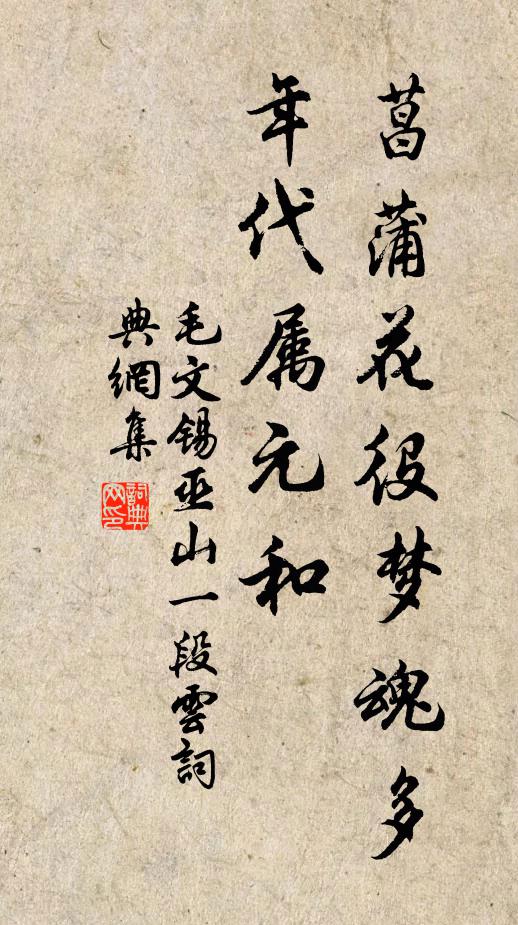 菖蒲花役梦魂多
年代属元和
毛文锡巫山一段雲詞
典網集
詞典
网印